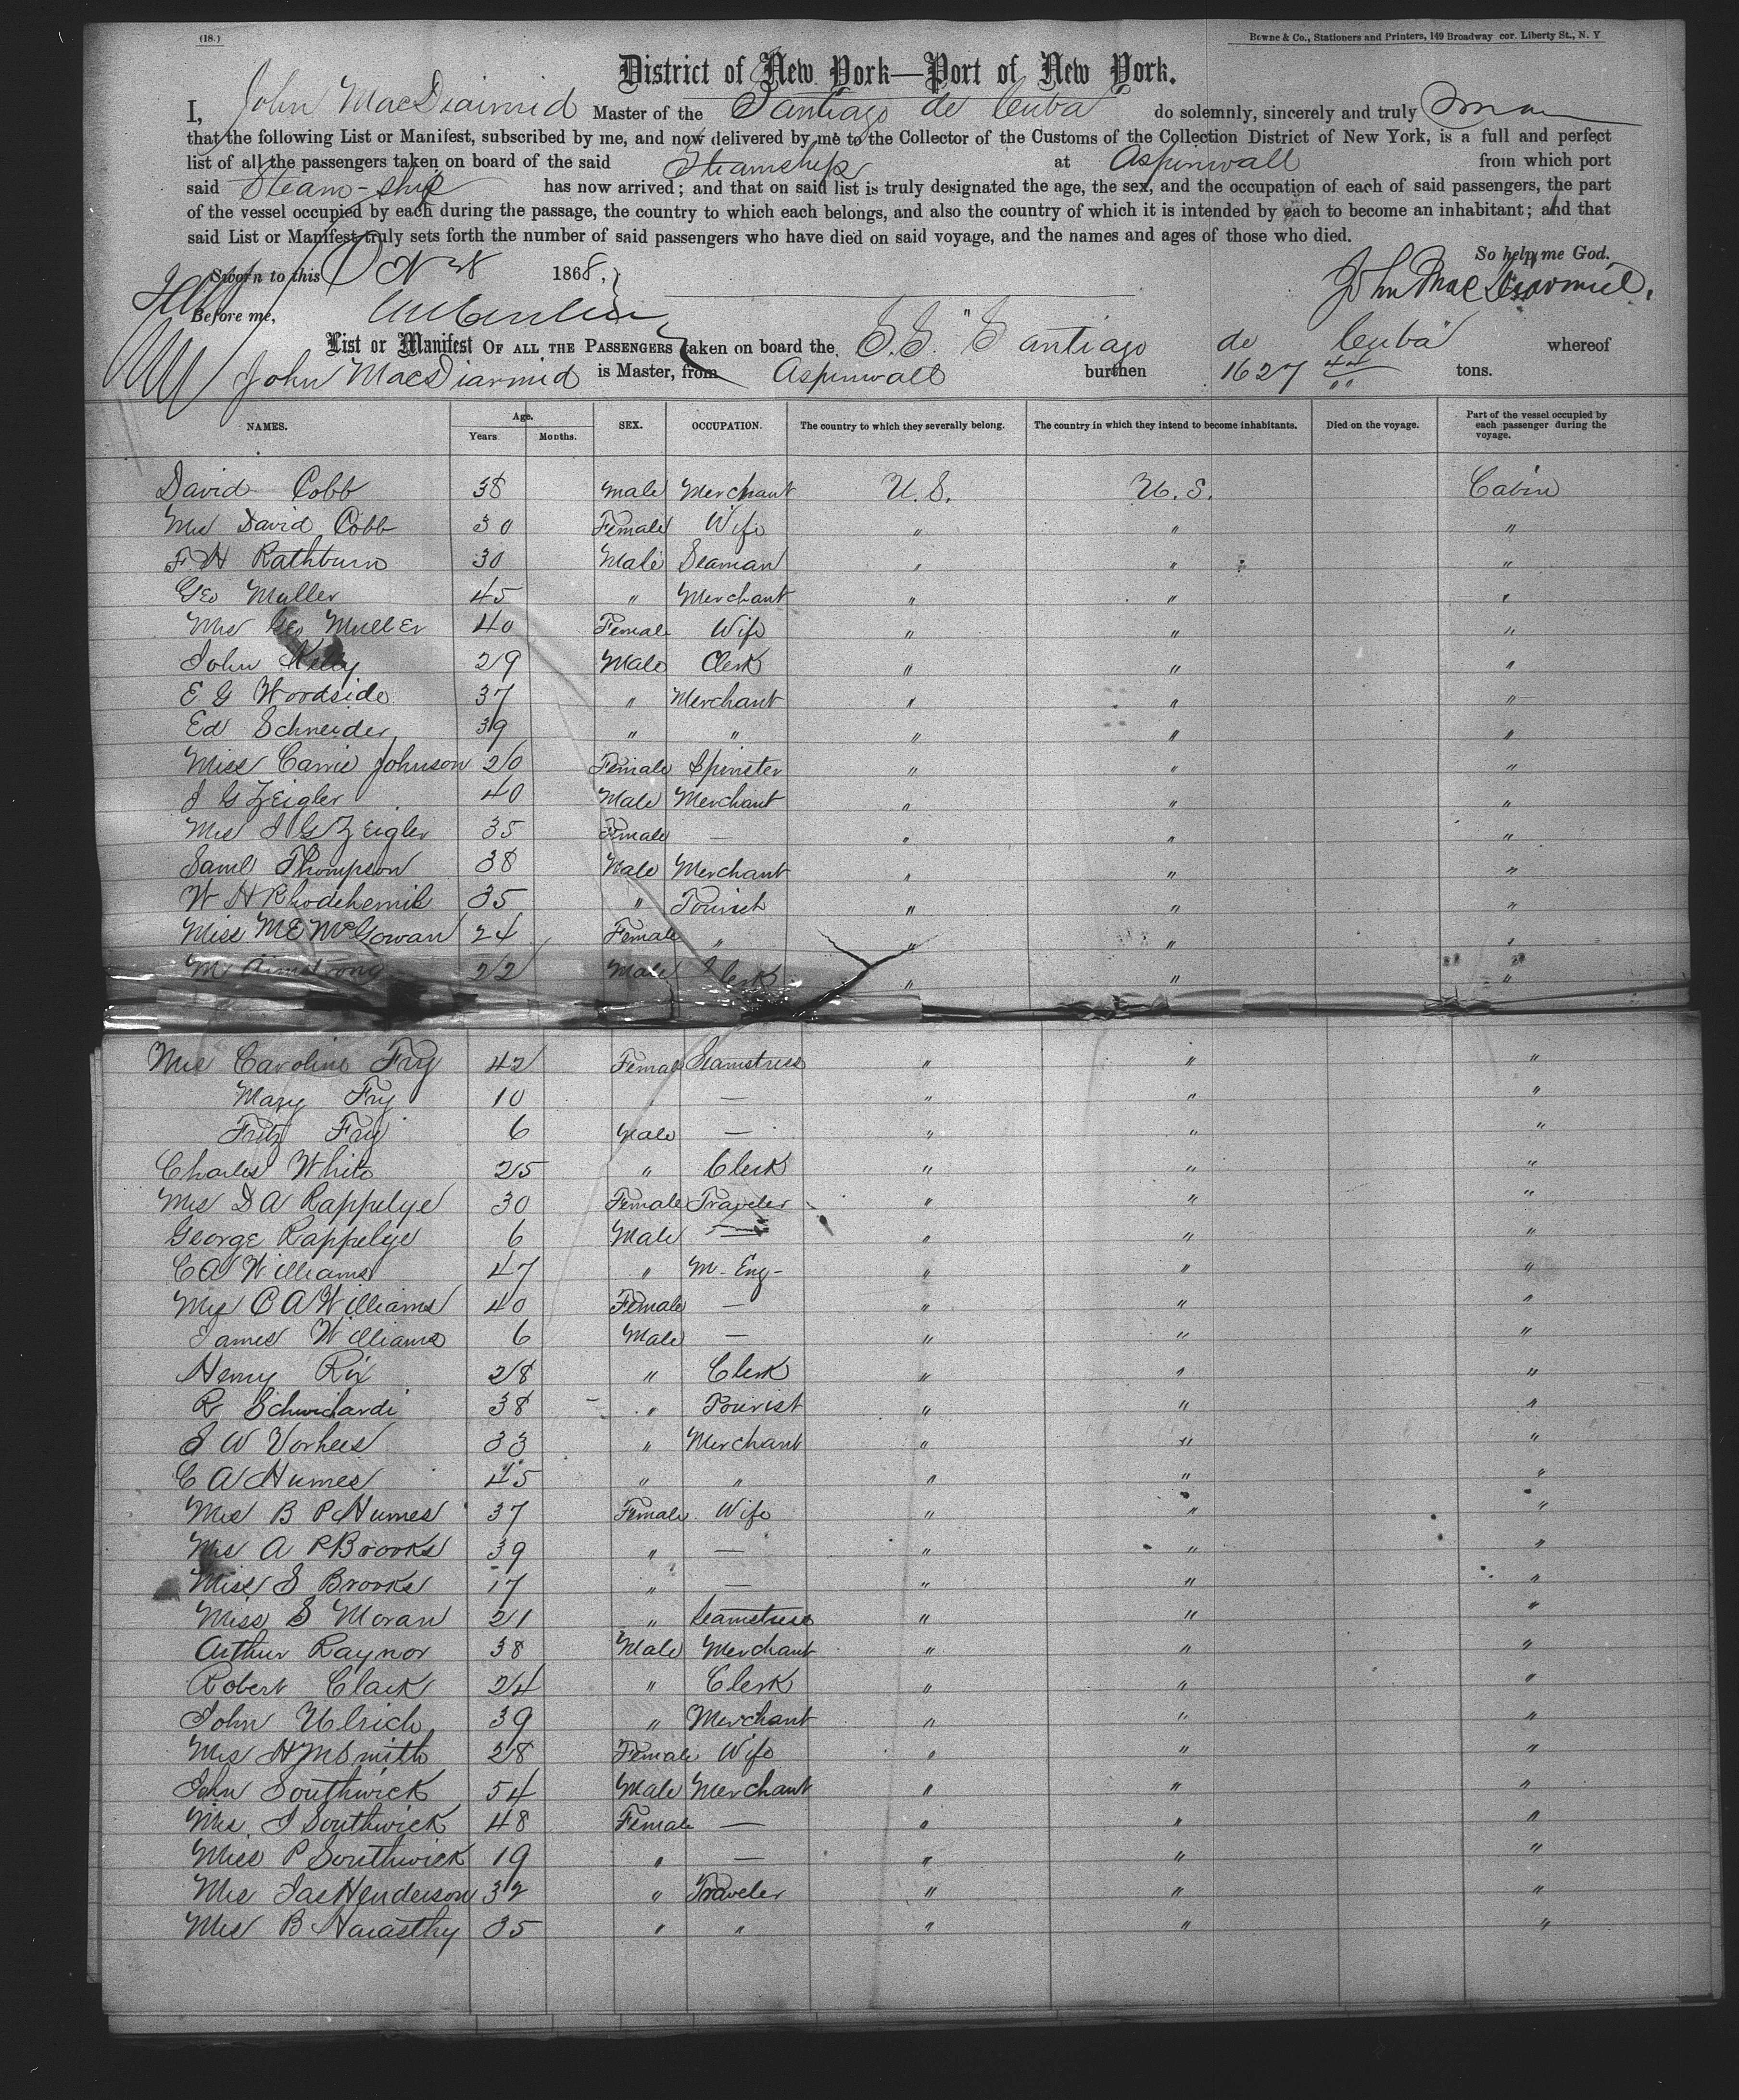 (18.)
Bowne & Co., Stationers and Printers, 149 Broadway cor. Liberty St., N. Y
District of New York—Port of New York.
I, John MacDiarmid Master of the Santiago de Cuba do solemnly, sincerely and truly
that the following List or Manifest, subscribed by me, and now delivered by me to the Collector of the Customs of the Collection District of New York, is a full and perfect
list of all the passengers taken on board of the said Steamship at Aspinwall from which port
said Steam-ship has now arrived; and that on said list is truly designated the age, the sex, and the occupation of each of said passengers, the part
of the vessel occupied by each during the passage, the country to which each belongs, and also the country of which it is intended by each to become an inhabitant; and that
said List or Manifest truly sets forth the number of said passengers who have died on said voyage, and the names and ages of those who died.
So help me God.
Sworn to this 1868, John MacDiarmid.
Before me,
List or Manifest OF ALL THE PASSENGERS taken on board the S.S. "Santiago de Cuba" whereof
John MacDiarmid is Master, from Aspinwall burthen 1627 44/" tons.
NAMES. Age. Years. Months. SEX. OCCUPATION. The country to which they severally belong. The country in which they intend to become inhabitants. Died on the voyage. Part of the vessel occupied by each passenger during the voyage.
David Cobb 38 Male Merchant U.S. U.S. Cabin
Mrs David Cobb 30 Female Wife " " "
F H Rathburn 30 Male Seaman " " "
Geo Muller 45 " Merchant " " "
Mrs Geo Muller 40 Female Wife " " "
John Kelly 29 Male Clerk " " "
E G Woodside 37 " Merchant " " "
Ed Schneider 39 " " " " "
Miss Carrie Johnson 20 Female Spinster " " "
J G Zeigler 40 Male Merchant " " "
Mrs J G Zeigler 35 Female — " " "
Saml Thompson 38 Male Merchant " " "
W H 35 " Tourist " " "
Miss M E McGowan 24 Female " " " "
M Armstrong 22 Male Clerk " " "
Mrs Caroline Fry 42 Female Seamstress " " "
Mary Fry 10 — " " "
Fritz Fry 6 Male — " " "
Charles White 25 " Clerk " " "
Mrs D A Rappelye 30 Female Traveler " " "
George Rappelye 6 Male — " " "
C A Williams 47 " M. Eng- " " "
Mrs C A Williams 40 Female — " " "
James Williams 6 Male — " " "
Henry Rix 28 " Clerk " " "
R Schwichardi 38 " Tourist " " "
S W Vorhees 33 " Merchant " " "
C A Humes 45 " " " " "
Mrs B P Humes 37 Female Wife " " "
Mrs A P Brooks 39 " — " " "
Miss S Brooks 17 " — " " "
Miss S Moran 21 " Seamstress " " "
Arthur Raynor 38 Male Merchant " " "
Robert Clark 24 " Clerk " " "
John Ulrich 39 " Merchant " " "
Mrs H M Smith 28 Female Wife " " "
John Southwick 54 Male Merchant " " "
Mrs J Southwick 48 Female — " " "
Miss P Southwick 19 " — " " "
Mrs Jas Henderson 32 " Traveler " " "
Mrs B Harasthy 35 " " " " "